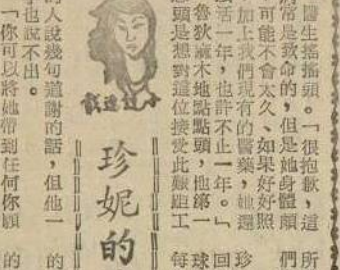 所
們
珍
回
球
每
醫生搖搖頭。「很抱歉,這
常是致命的,但是她身體頗
可能不會太久、如果好好照
加上我們現有的醫藥,她還
活一年,也許不止一年。」
魯狄麻木地點點頭,他第一
頭是想對這位接受此艱距工
小說連載
珍妮的
人說幾句道謝的話,但他一
也說不出。
「你可以將她帶到任何你願
的
的